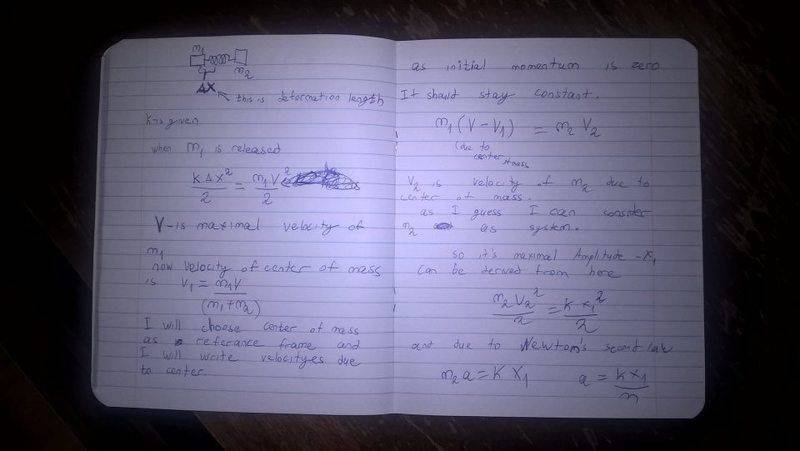 m1
m2
ΔX
this is deformation length
K is given
when m1 is released
KΔX²/2 = m1V²/2
V-is maximal velocity of
m1
now velocity of center of mass
is V1 = m1V/(m1+m2)
I will choose center of mass
as referance frame and
I will write velocityes due
to center.
as initial momentum is zero
It should stay constant.
m1(V-V1) = m2V2
(due to
center of mass
V2 is velocity of m2 due to
center of mass.
as I guess I can consider
m2 as system.
so it's maximal Amplitude - X1
can be derived from here
m2V2²/2 = KX1²/2
and due to Newton's second law
m2a = KX1 a = KX1/m